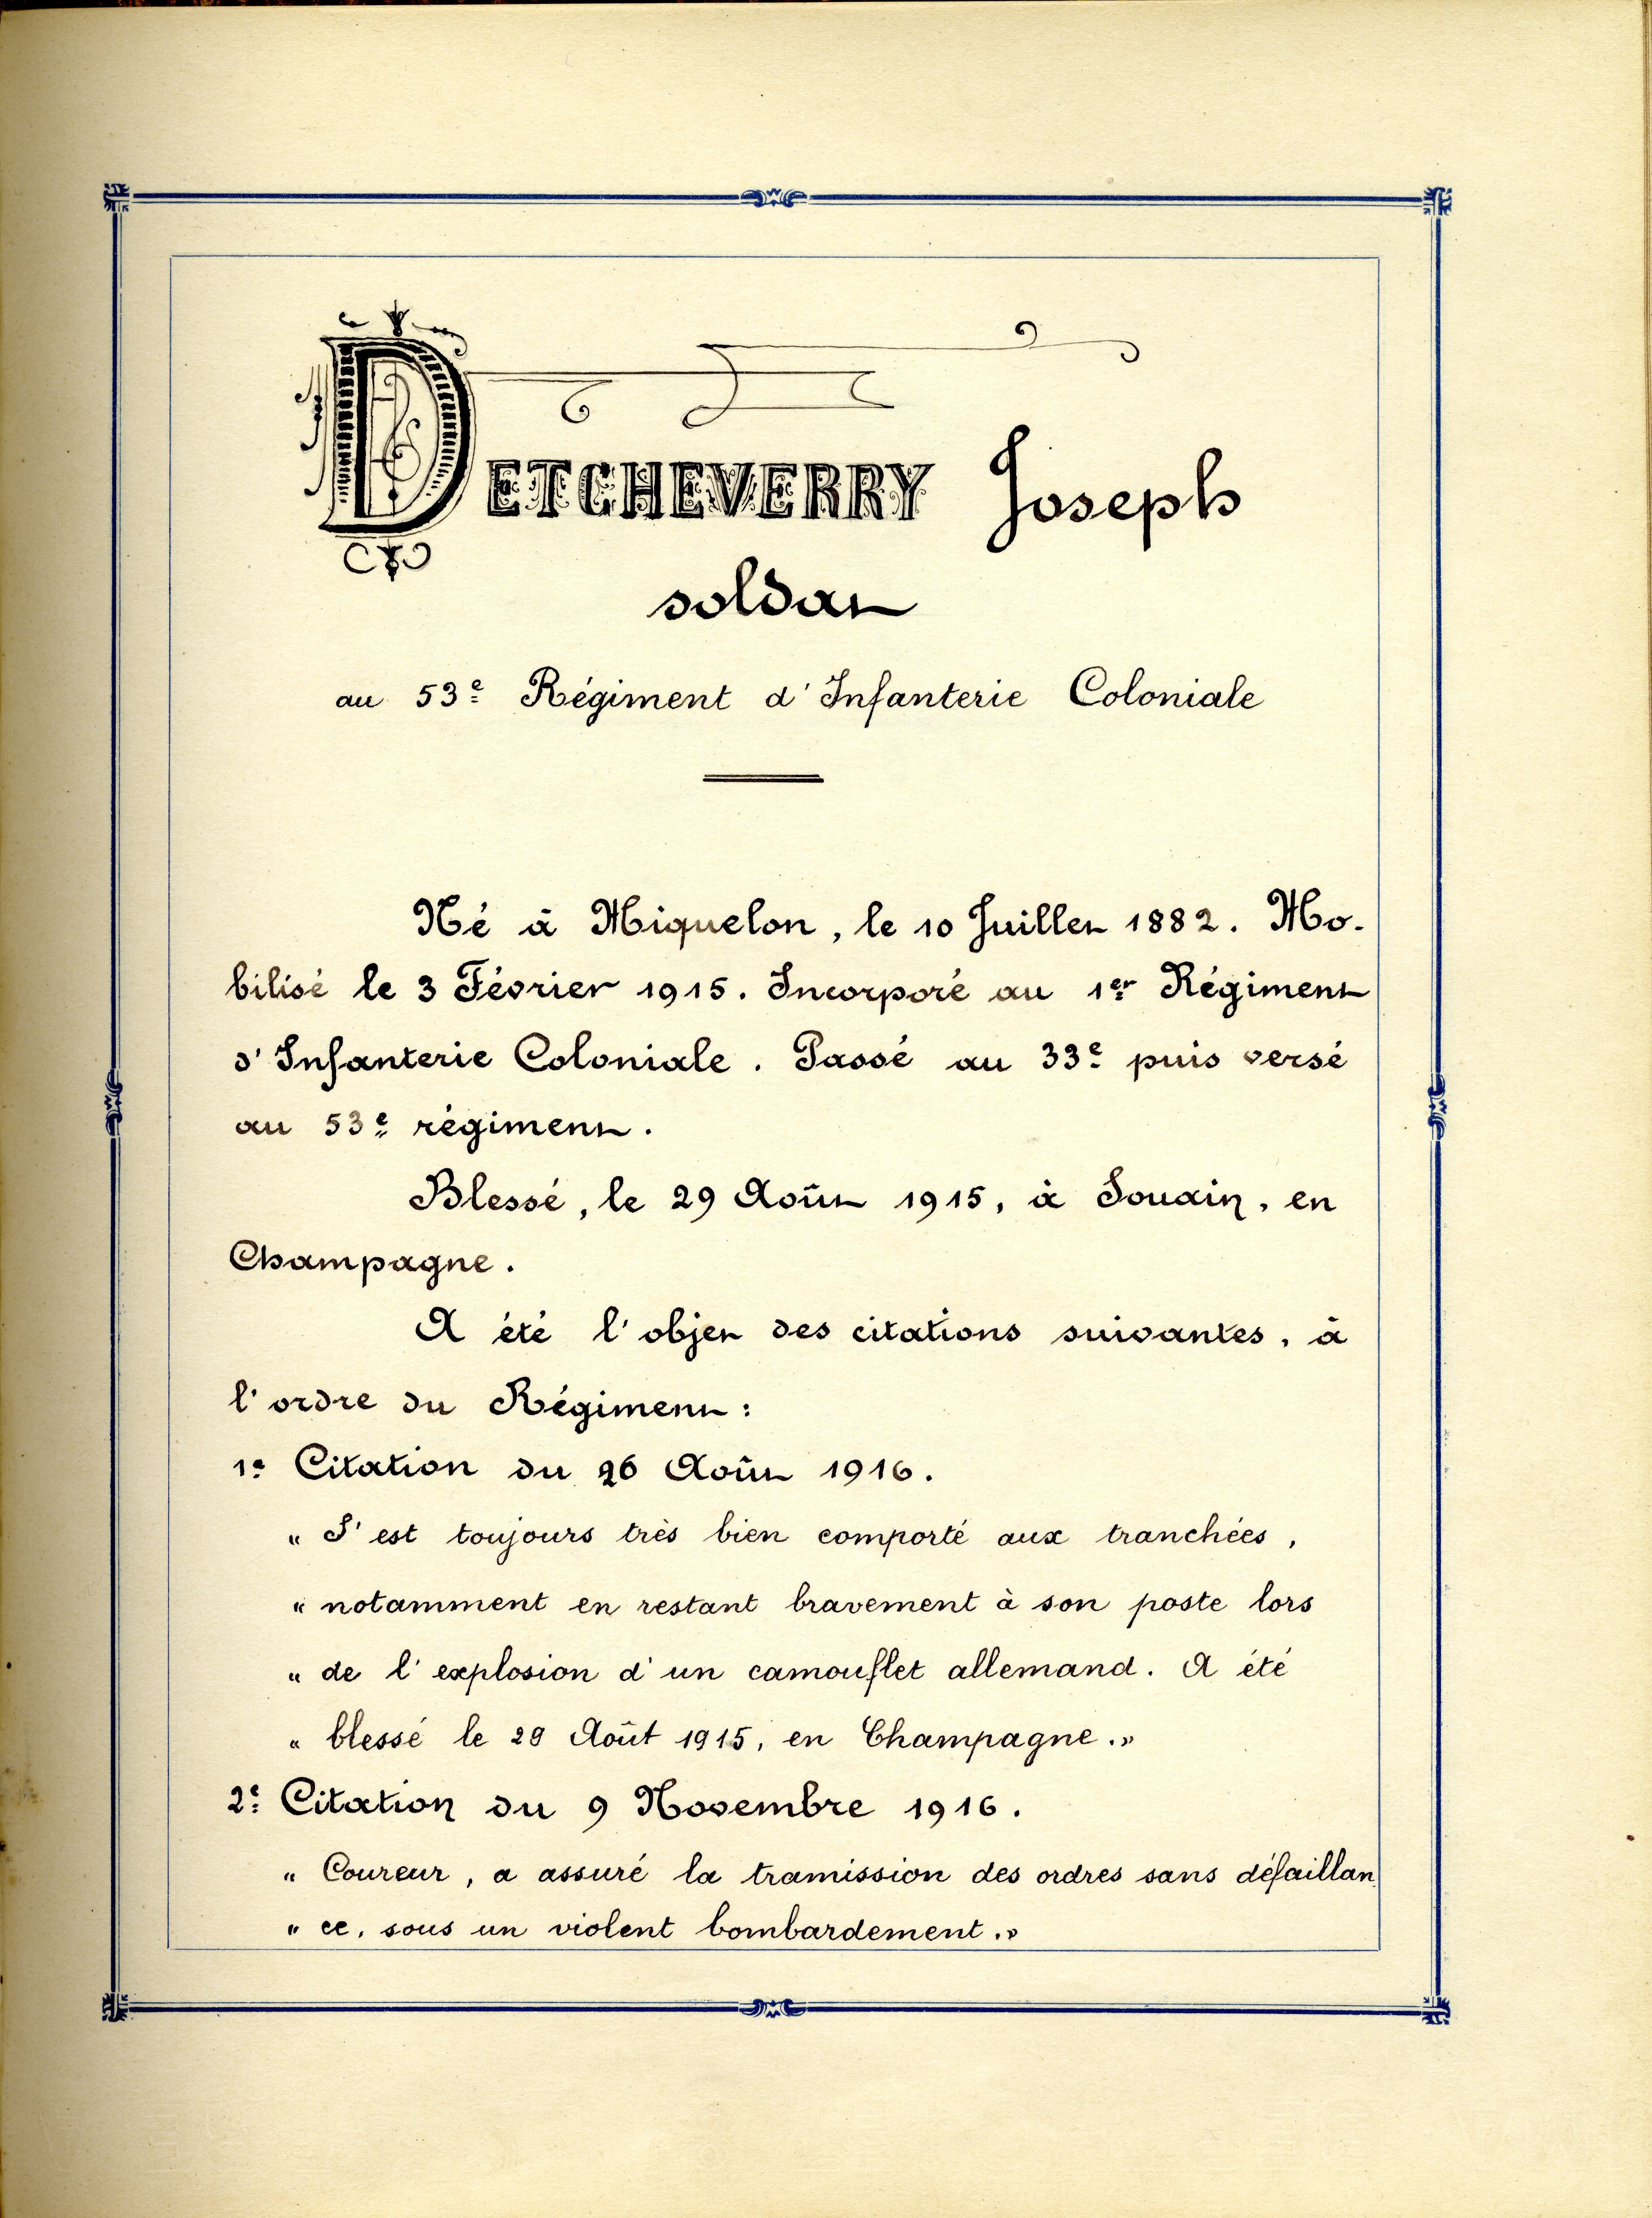 DETCHEVERRY Joseph
soldat
au 53e Régiment d'Infanterie Coloniale
Né à Miquelon, le 10 Juillet 1882. Mo-
bilisé le 3 Février 1915. Incorporé au 1er Régiment
d'Infanterie Coloniale. Passé au 33e puis versé
au 53e régiment.
Blessé, le 29 Août 1915, à Souain, en
Champagne.
A été l'objet des citations suivantes, à
l'ordre du Régiment:
1e Citation du 26 Août 1916.
« S'est toujours très bien comporté aux tranchées,
« notamment en restant bravement à son poste lors
« de l'explosion d'un camouflet allemand. A été
« blessé le 29 Août 1915, en Champagne.»
2e Citation du 9 Novembre 1916.
« Coureur, a assuré la tramission des ordres sans défaillan
« ce, sous un violent bombardement.»